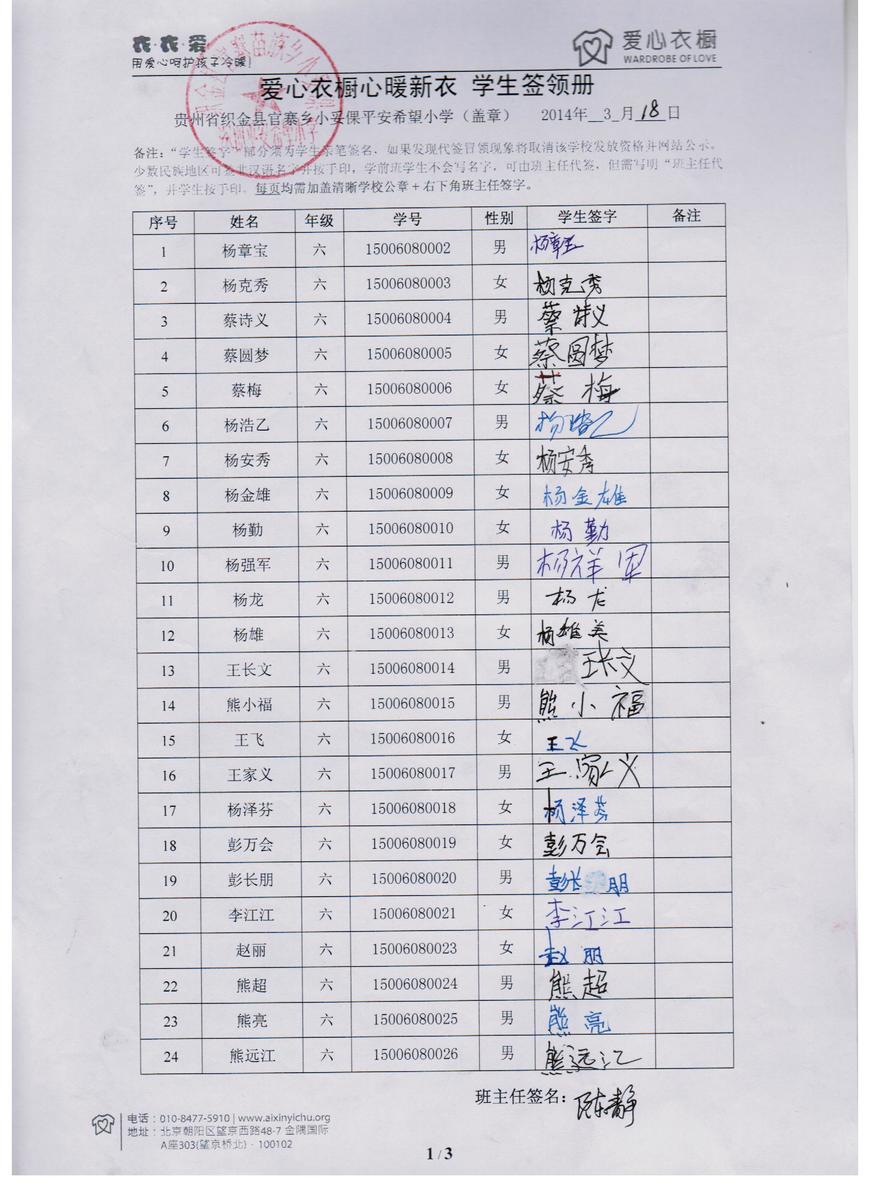 衣·衣·爱
用爱心呵护孩子冷暖!
爱心衣橱
WARDROBE OF LOVE
爱心衣橱心暖新衣 学生签领册
贵州省织金县官寨乡小妥倮平安希望小学(盖章) 2014年 3 月 18 日
备注:“学生签字”部分须为学生亲笔签名,如果发现代签冒领现象将取消该学校发放资格并网站公示。
少数民族地区可签非汉语名字并按手印,学前班学生不会写名字,可由班主任代签,但需写明“班主任代
签”,并学生按手印。每页均需加盖清晰学校公章+右下角班主任签字。
序号 姓名 年级 学号 性别 学生签字 备注
1 杨章宝 六 15006080002 男 杨章宝
2 杨克秀 六 15006080003 女 杨克秀
3 蔡诗义 六 15006080004 男 蔡诗义
4 蔡圆梦 六 15006080005 女 蔡圆梦
5 蔡梅 六 15006080006 女 蔡梅
6 杨浩乙 六 15006080007 男 杨浩乙
7 杨安秀 六 15006080008 女 杨安秀
8 杨金雄 六 15006080009 女 杨金雄
9 杨勤 六 15006080010 女 杨勤
10 杨强军 六 15006080011 男 杨祥军
11 杨龙 六 15006080012 男 杨龙
12 杨雄 六 15006080013 女 杨雄美
13 王长文 六 15006080014 男 王长文
14 熊小福 六 15006080015 男 熊小福
15 王飞 六 15006080016 女 王飞
16 王家义 六 15006080017 男 王家义
17 杨泽芬 六 15006080018 女 杨泽芬
18 彭万会 六 15006080019 女 彭万会
19 彭长朋 六 15006080020 男 彭长朋
20 李江江 六 15006080021 女 李江江
21 赵丽 六 15006080023 女 赵丽
22 熊超 六 15006080024 男 熊超
23 熊亮 六 15006080025 男 熊亮
24 熊远江 六 15006080026 男 熊远江
班主任签名:陈静
电话:010-8477-5910 | www.aixinyichu.org
地址:北京朝阳区望京西路48-7 金隅国际
A座303(望京桥北)·100102
1 / 3